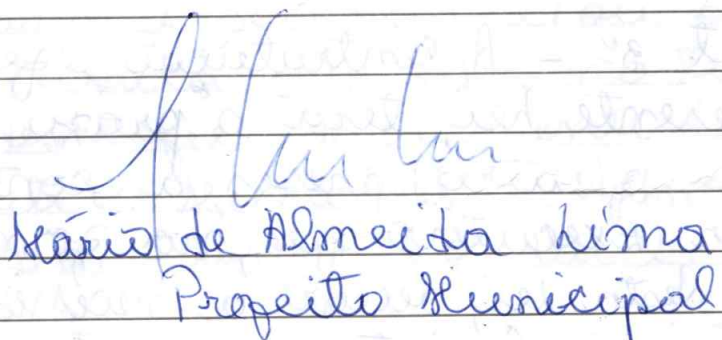 Mário de Almeida Lima
Prefeito Municipal